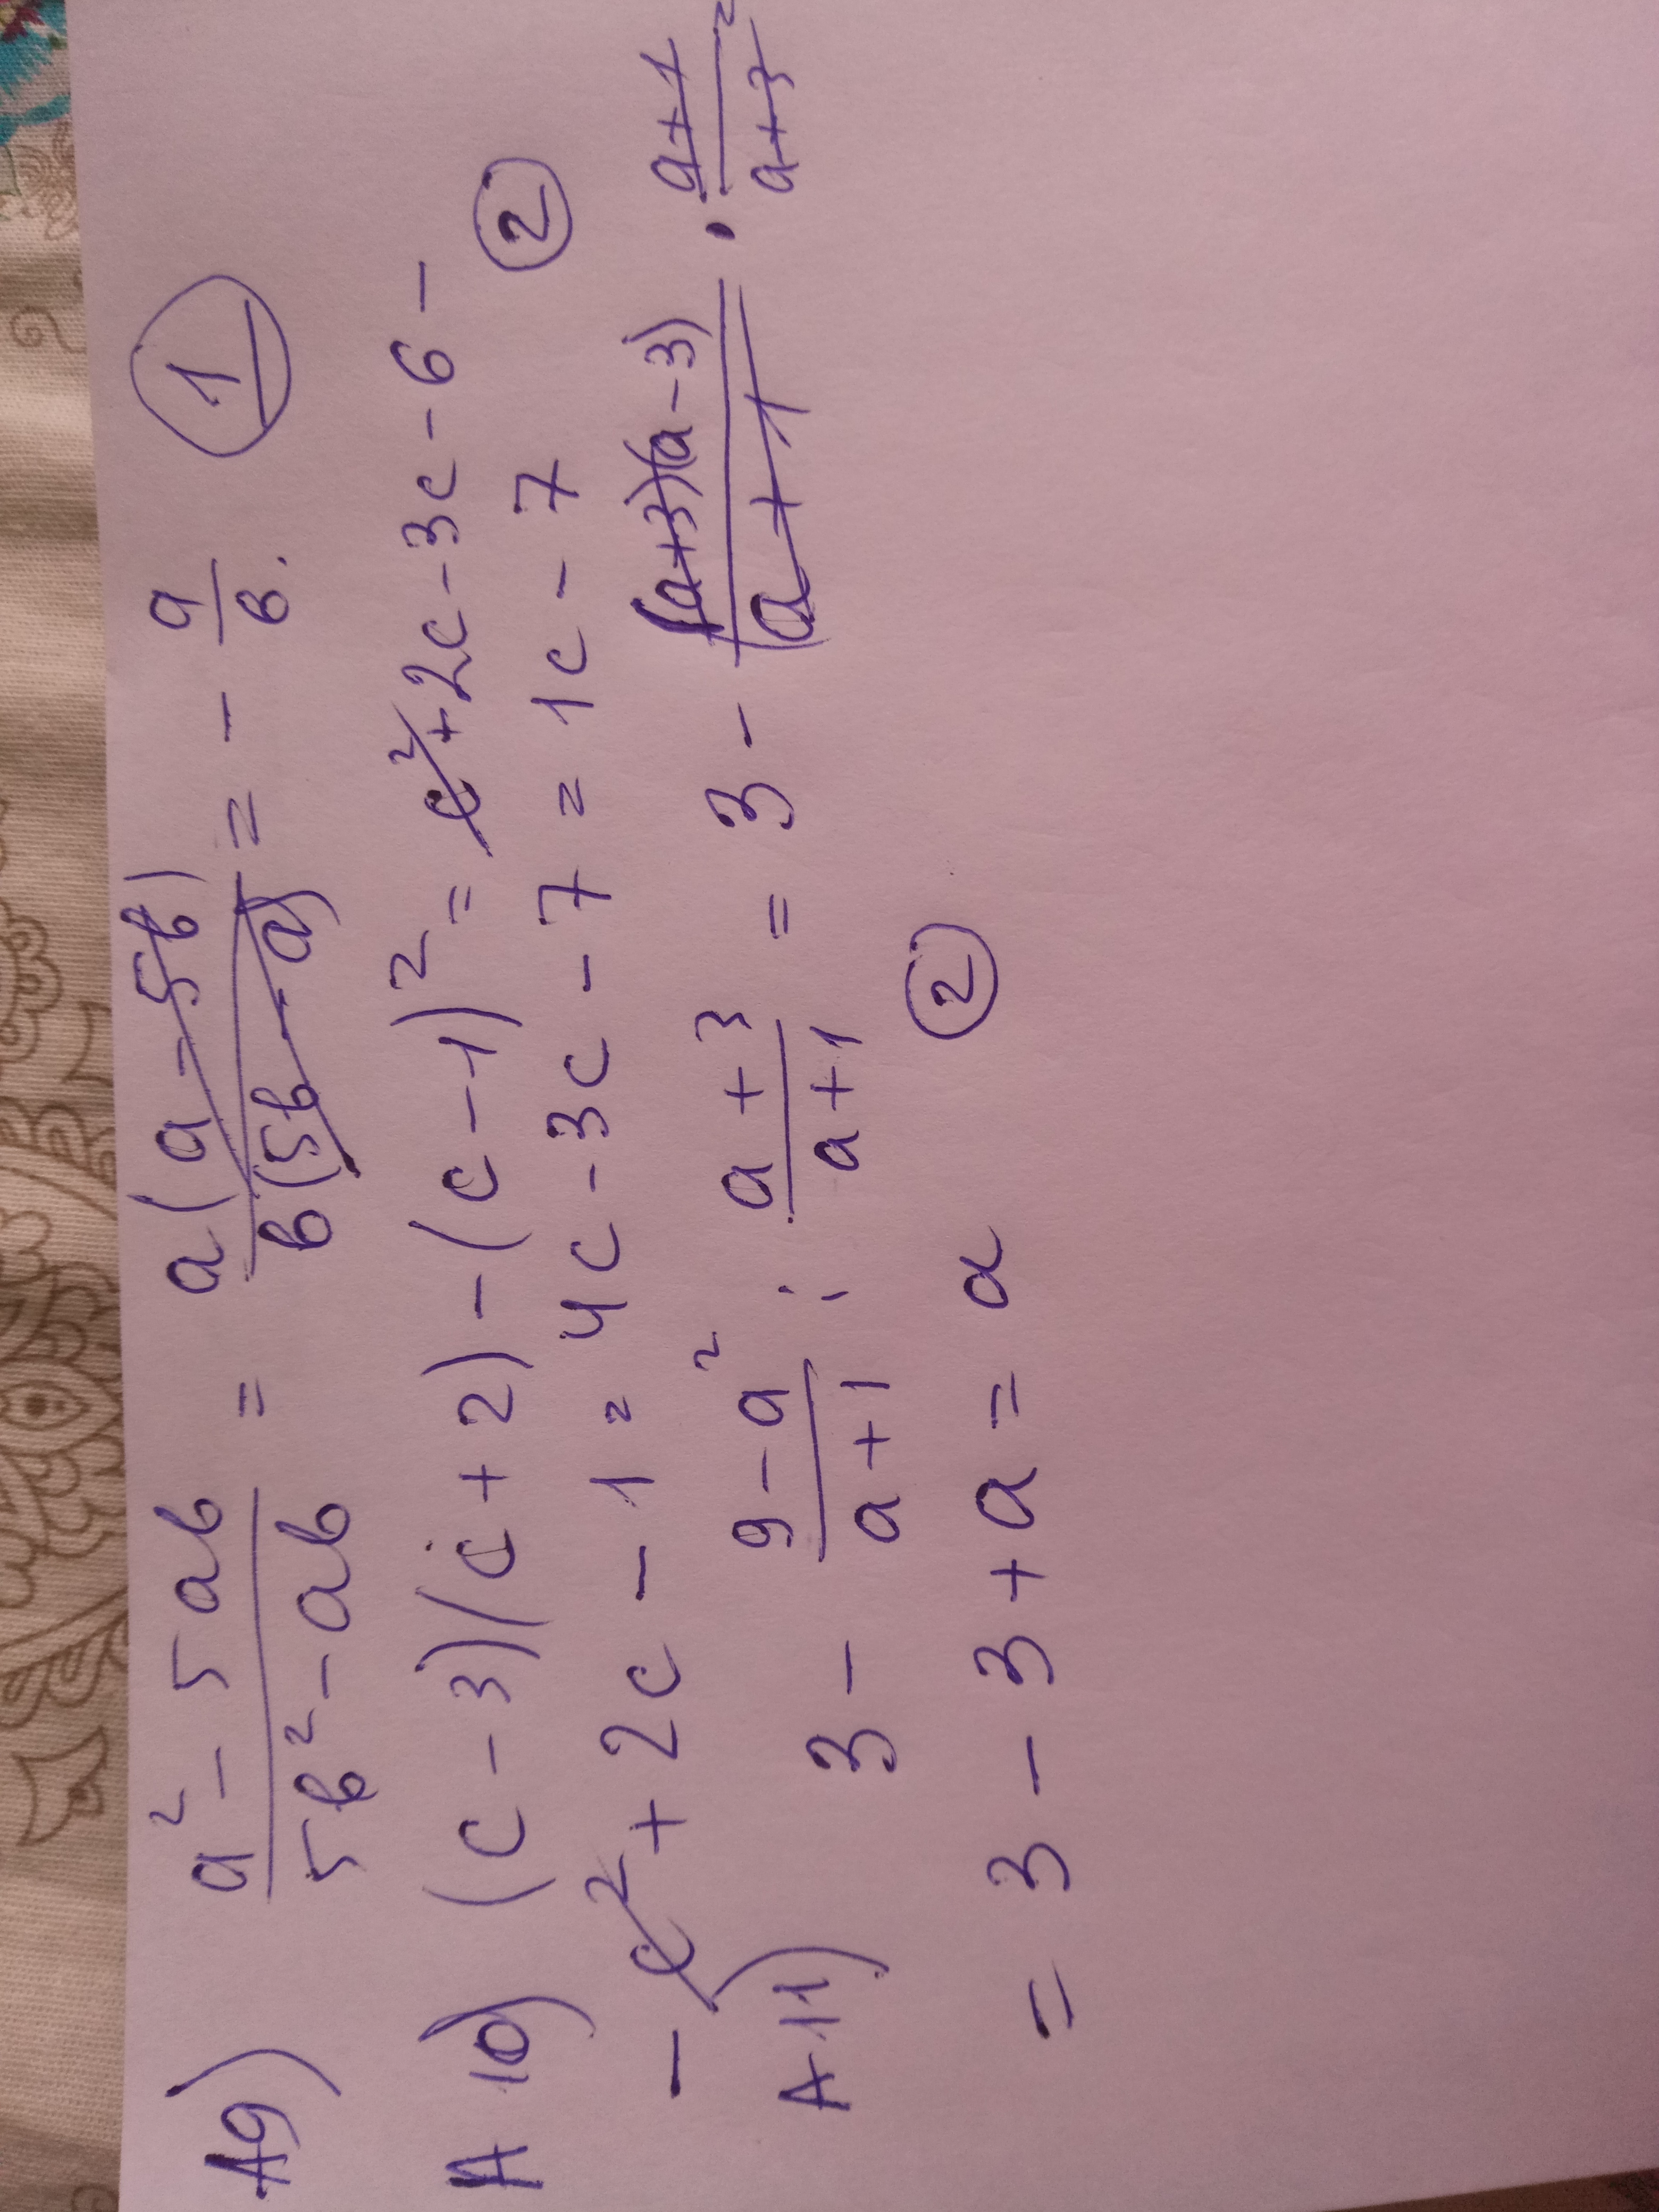 А9) (a² - 5ab)/(5b² - ab) = a(a - 5b)/b(5b - a) = - a/b. ①
А 10) (c - 3)(c + 2) - (c - 1)² = c² + 2c - 3c - 6 -
- c² + 2c - 1 = 4c - 3c - 7 = 1c - 7 ②
А 11) 3 - (9 - a²)/(a + 1) : (a + 3)/(a + 1) = 3 - (a+3)(a-3)/(a+1) · (a+1)/(a+3) =
= 3 - 3 + a = a ②